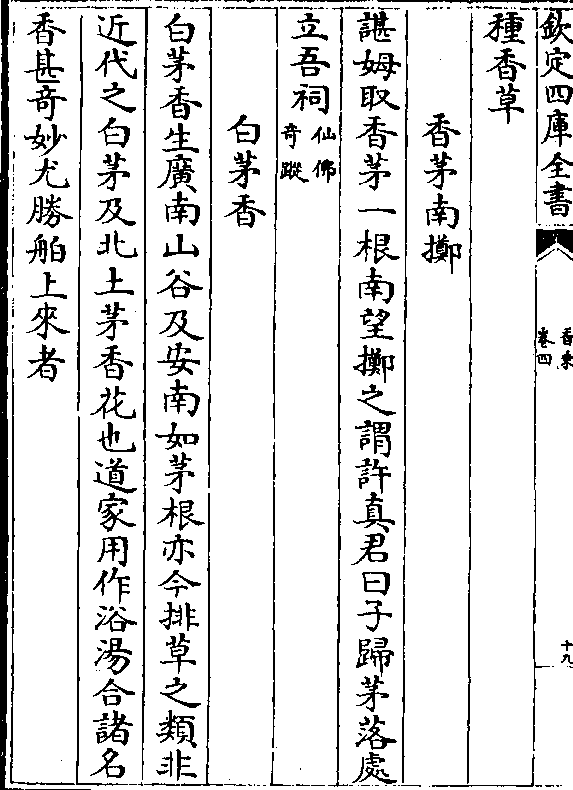 欽定四庫全書
香乗
卷四
十九
種香草
香茅南擲
諶姆取香茅一根南望擲之謂許真君曰子歸茅落處
立吾祠仙佛
奇蹤
白茅香
白茅香生廣南山谷及安南如茅根亦今排草之類非
近代之白茅及北土茅香花也道家用作浴湯合諸名
香甚奇妙尤勝舶上來者